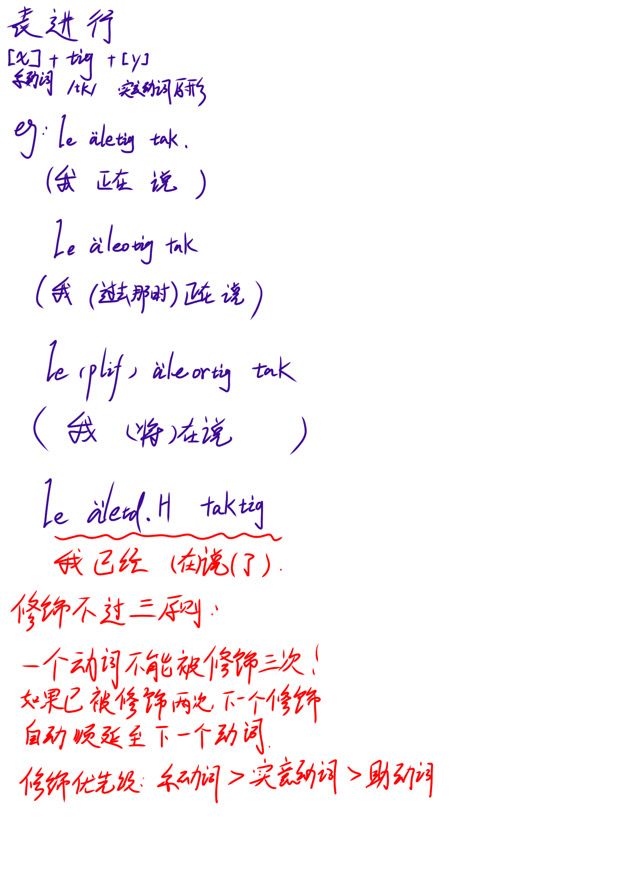 表进行
[x] + tig + [y]
系动词 /tk/ 实意动词原形
eg: le äletig tak.
(我 正在 说 )
le äleotig tak
(我 (过去那时)正在说)
le (plif) äleortig tak
( 我 (将)在说 )
le äletd.H taktig
我已经 (在)说(了).
修饰不过三原则:
一个动词不能被修饰三次!
如果已被修饰两次 下一个修饰
自动顺延至下一个动词.
修饰优先级: 系动词 > 实意动词 > 助动词